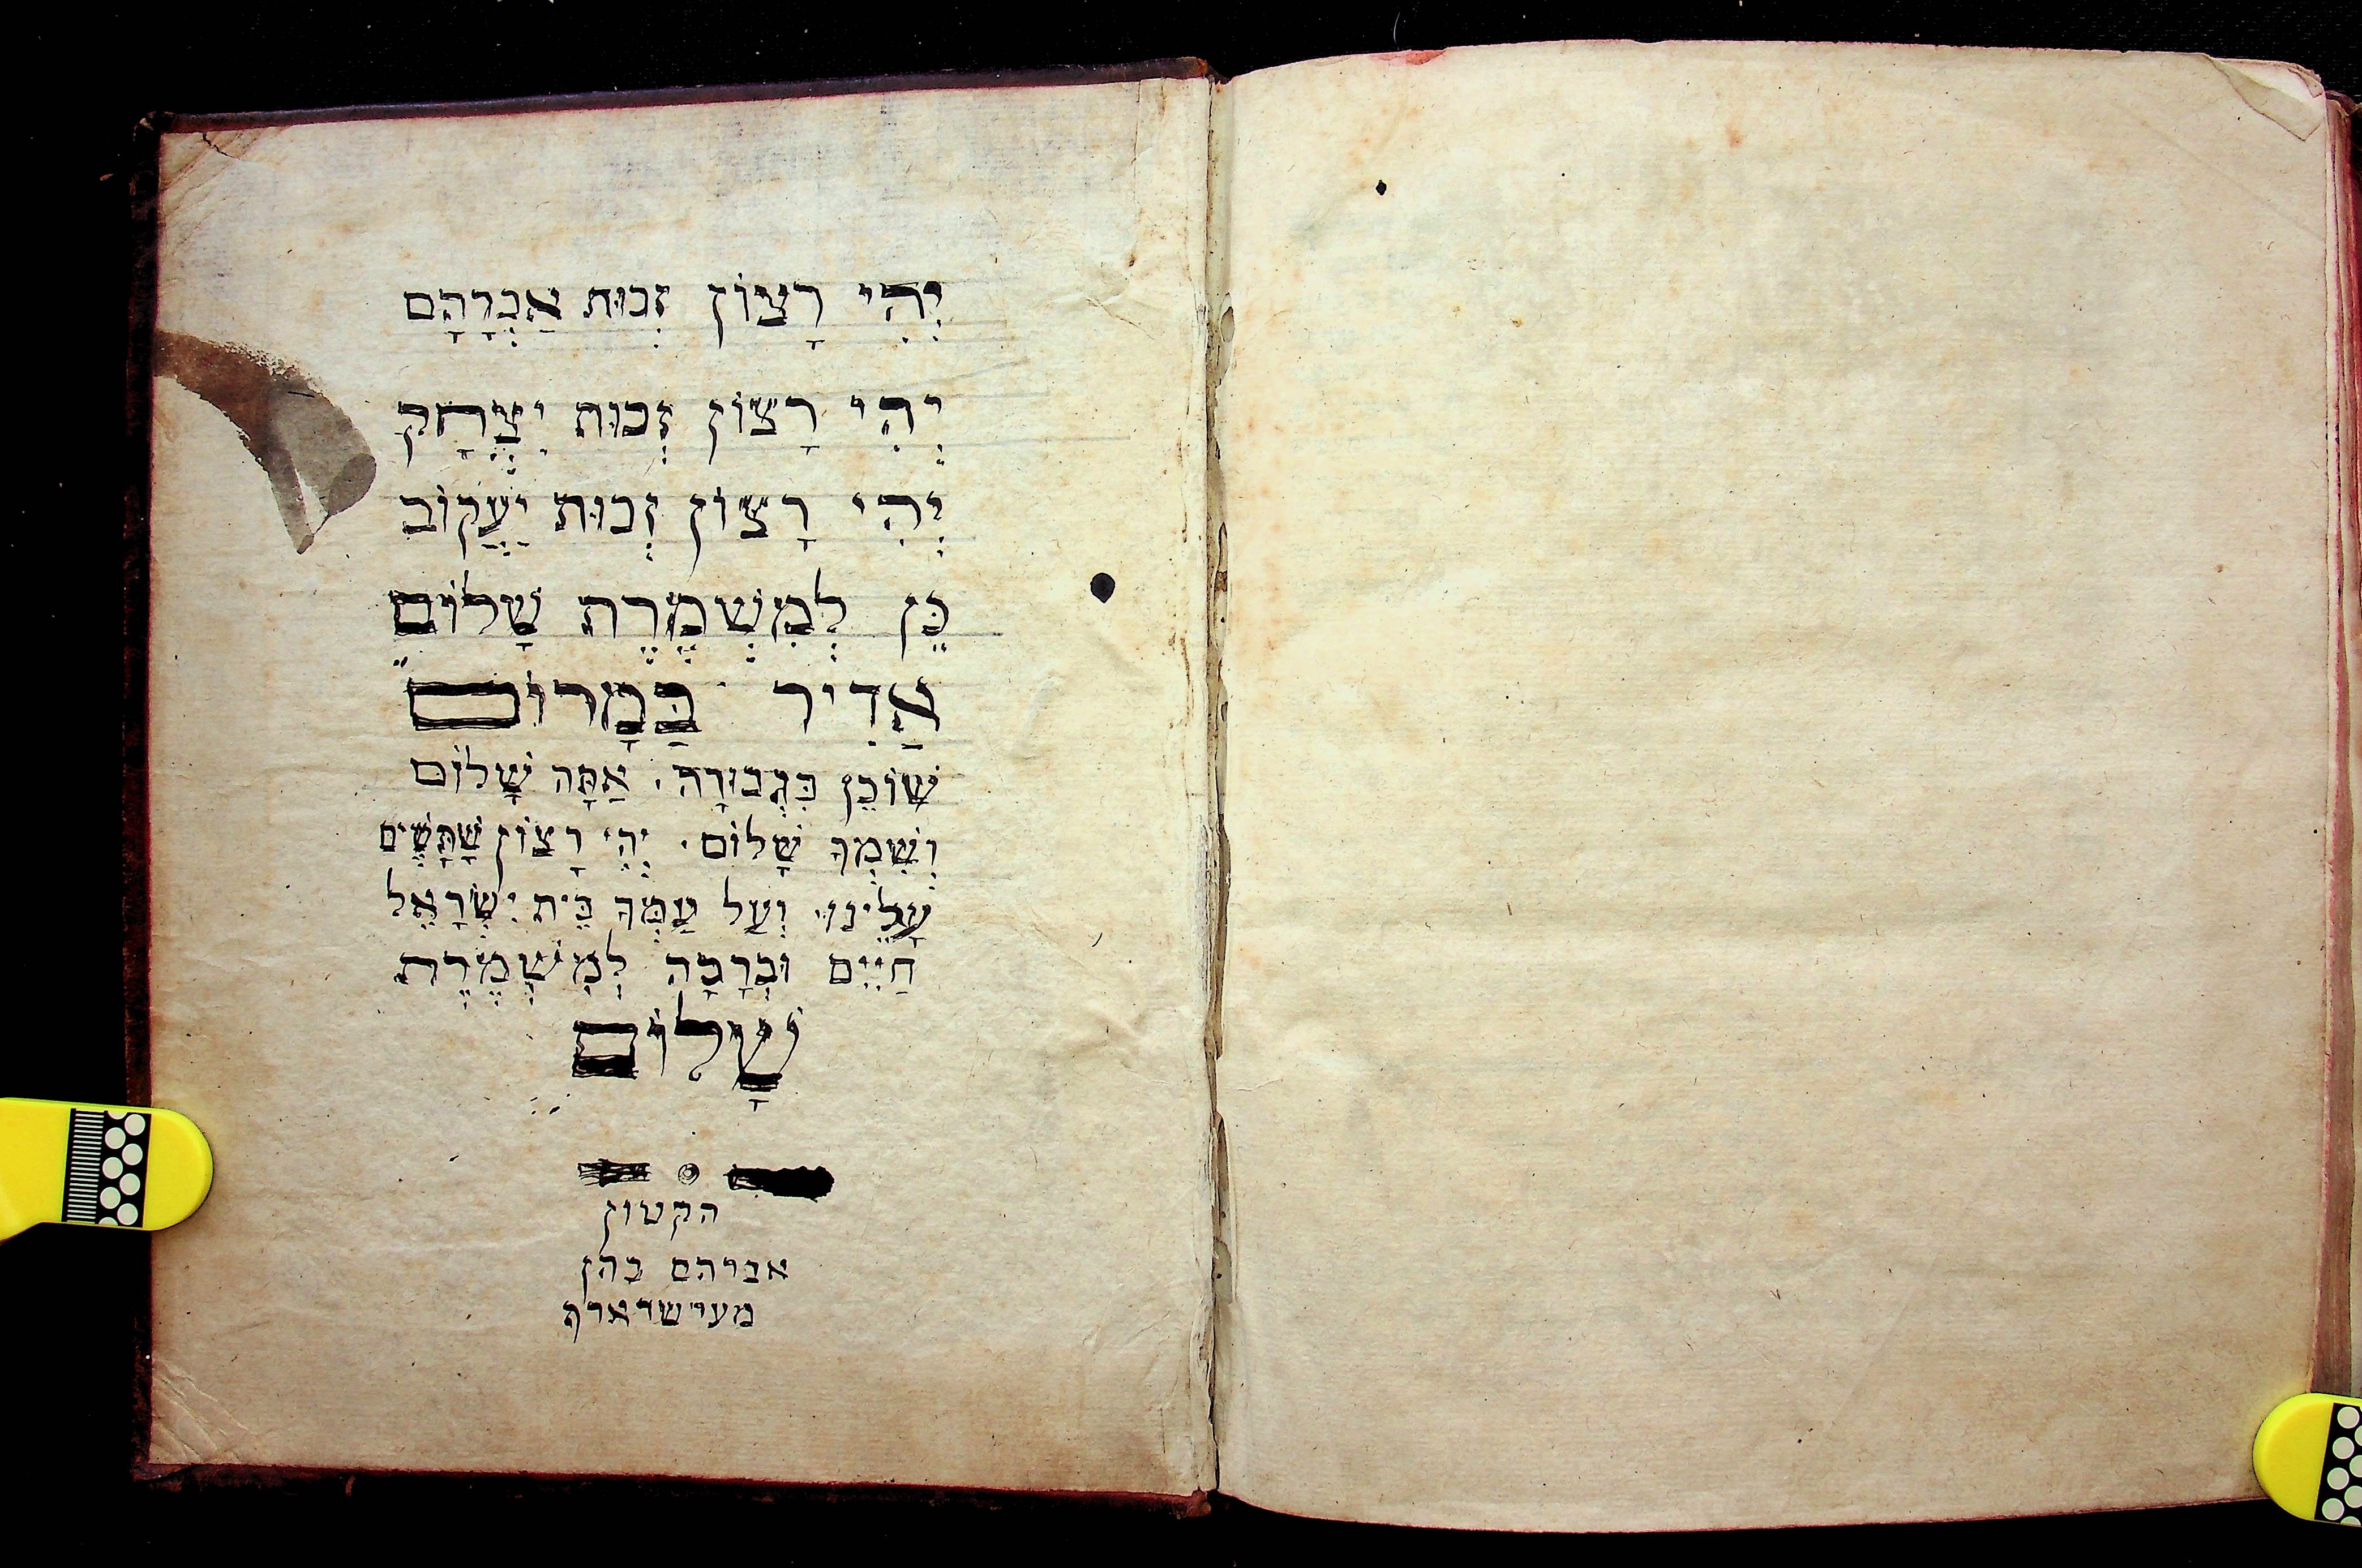 יְהִי רָצוֹן זְכוּת אַבְרָהָם
יְהִי רָצוֹן זְכוּת יִצְחָק
יְהִי רָצוֹן זְכוּת יַעֲקוֹב
כֵּן לְמִשְׁמֶרֶת שָׁלוֹם
אַדִיר בַּמָרוֹם
שׁוֹכֵן בִּגְבוּרָה · אַתָּה שָׁלוֹם
וְשִׁמְךָ שָׁלוֹם · יְהִי רָצוֹן שֶׁתָּשִׂים
עָלֵינוּ וְעַל עַמְּךָ בֵּית יִשְׂרָאֵל
חַיִּים וּבְרָכָה לְמִשְׁמֶרֶת
שָׁלוֹם
הקטון
אברהם כהן